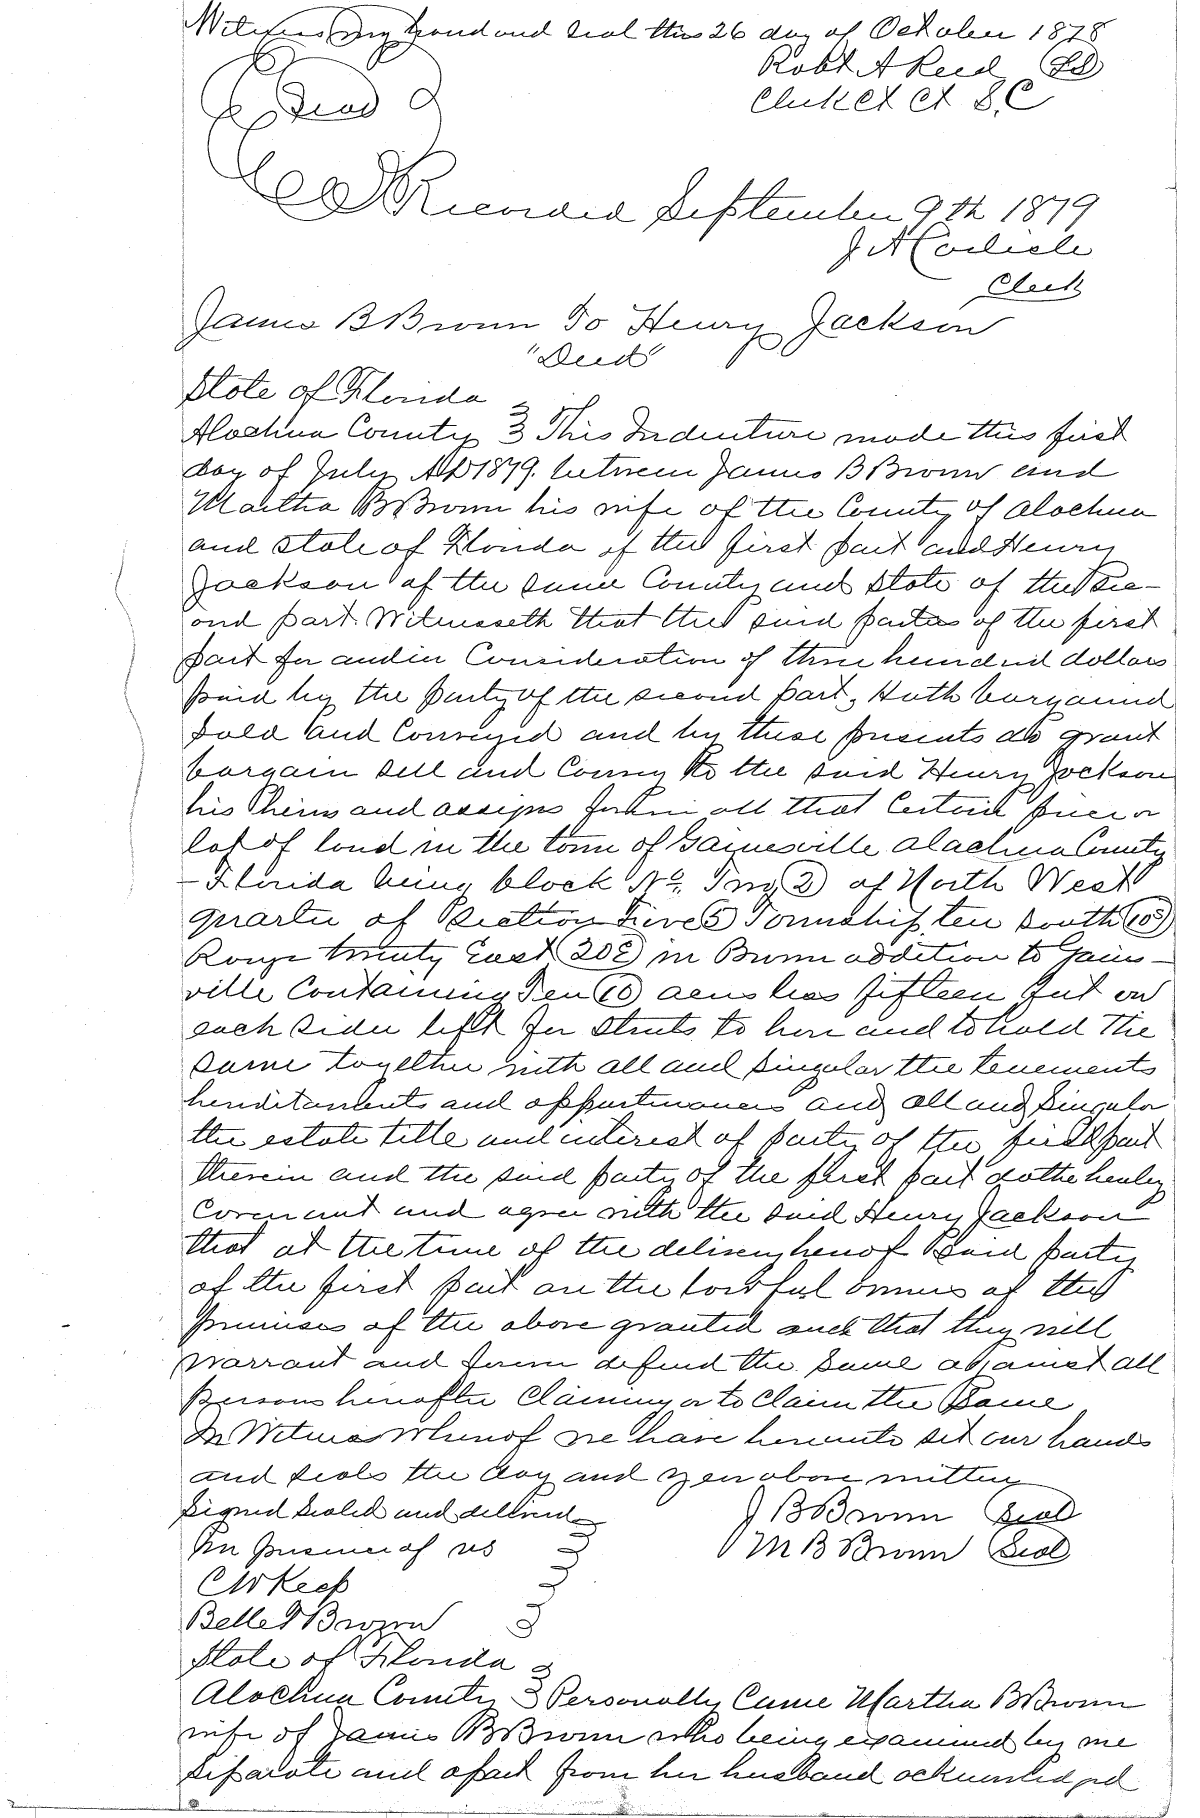 Witness my hand and seal this 26 day of October 1878
Robt A Reed LS
Clerk Ct Ct S.C
Seal
Recorded September 9th 1879
J A Carlisle
Clerk
James B Brown To Henry Jackson
"Deed"
State of Florida
Alachua County This Indenture made this first
day of July AD 1879. between James B Brown and
Martha B Brown his wife of the County of Alachua
and State of Florida of the first part and Henry
Jackson of the same County and State of the Sec-
ond part. Witnesseth that the said parties of the first
part for and in Consideration of three hundred dollars
paid by the party of the second part, Hath bargained
sold and Conveyed and by these presents do grant
bargain sell and Convey to the said Henry Jackson
his heirs and assigns forever all that Certain piece or
lot of land in the town of Gainesville Alachua County
- Florida being block No. Two (2) of North West
quarter of Section Five (5) Township ten South (10S)
Range twenty East (20E) in Brown addition to Gains-
ville Containing Ten (10) acres less fifteen feet on
each sides left for Streets to have and to hold the
same together with all and singular the tenements
hereditaments and appurtenances and all and Singular
the estate title and interest of party of the first part
therein and the said party of the first part dothe hereby
Covenant and agree with the said Henry Jackson
that at the time of the delivery hereof Said party
of the first part are the lawful owners of the
premises of the above granted and that they will
warrant and forever defend the Same against all
persons hereafter Claiming or to Claim the Same
In Witness Whereof we have hereunto set our hands
and seals the day and year above written
Signed Sealed and delivered J B Brown Seal
In presence of us M B Brown Seal
C W Keep
Belle Brown
State of Florida
Alachua County Personally Came Martha B Brown
wife of James B Brown who being examined by me
separate and apart from her husband acknowledged